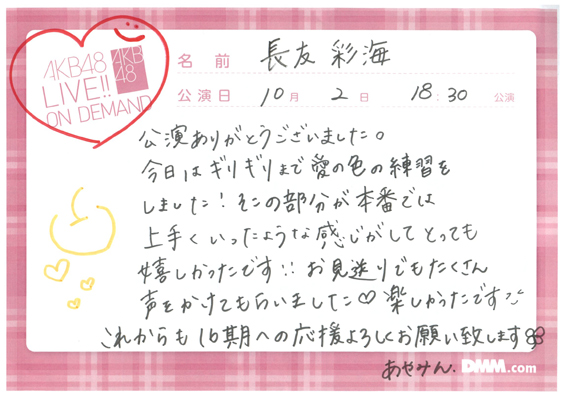 AKB48
LIVE!!
ON DEMAND
AKB
48
名前 長友彩海
公演日 10月 2日 18:30 公演
公演ありがとうございました。
今日はギリギリまで愛の色の練習を
しました!そこの部分が本番では
上手くいったような感じがしてとっても
嬉しかったです!! お見送りでもたくさん
声をかけてもらいました♡楽しかったです
これからも16期への応援よろしくお願い致します
あやみん.
DMM.com